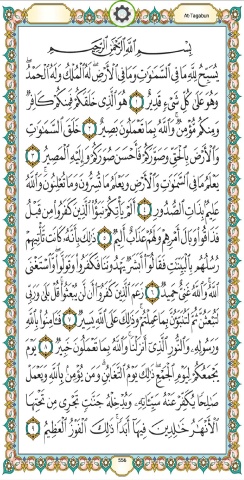 At-Tagabun
بِسْمِ اللَّهِ الرَّحْمَٰنِ الرَّحِيمِ
يُسَبِّحُ لِلَّهِ مَا فِي السَّمَاوَاتِ وَمَا فِي الْأَرْضِ لَهُ الْمُلْكُ وَلَهُ الْحَمْدُ
وَهُوَ عَلَىٰ كُلِّ شَيْءٍ قَدِيرٌ ١ هُوَ الَّذِي خَلَقَكُمْ فَمِنْكُمْ كَافِرٌ
وَمِنْكُمْ مُؤْمِنٌ وَاللَّهُ بِمَا تَعْمَلُونَ بَصِيرٌ ٢ خَلَقَ السَّمَاوَاتِ
وَالْأَرْضَ بِالْحَقِّ وَصَوَّرَكُمْ فَأَحْسَنَ صُوَرَكُمْ وَإِلَيْهِ الْمَصِيرُ ٣
يَعْلَمُ مَا فِي السَّمَاوَاتِ وَالْأَرْضِ وَيَعْلَمُ مَا تُسِرُّونَ وَمَا تُعْلِنُونَ وَاللَّهُ
عَلِيمٌ بِذَاتِ الصُّدُورِ ٤ أَلَمْ يَأْتِكُمْ نَبَأُ الَّذِينَ كَفَرُوا مِنْ قَبْلُ
فَذَاقُوا وَبَالَ أَمْرِهِمْ وَلَهُمْ عَذَابٌ أَلِيمٌ ٥ ذَٰلِكَ بِأَنَّهُ كَانَتْ تَأْتِيهِمْ
رُسُلُهُمْ بِالْبَيِّنَاتِ فَقَالُوا أَبَشَرٌ يَهْدُونَنَا فَكَفَرُوا وَتَوَلَّوْا وَاسْتَغْنَى
اللَّهُ وَاللَّهُ غَنِيٌّ حَمِيدٌ ٦ زَعَمَ الَّذِينَ كَفَرُوا أَنْ لَنْ يُبْعَثُوا قُلْ بَلَىٰ وَرَبِّي
لَتُبْعَثُنَّ ثُمَّ لَتُنَبَّؤُنَّ بِمَا عَمِلْتُمْ وَذَٰلِكَ عَلَى اللَّهِ يَسِيرٌ ٧ فَآمِنُوا بِاللَّهِ
وَرَسُولِهِ وَالنُّورِ الَّذِي أَنْزَلْنَا وَاللَّهُ بِمَا تَعْمَلُونَ خَبِيرٌ ٨ يَوْمَ
يَجْمَعُكُمْ لِيَوْمِ الْجَمْعِ ذَٰلِكَ يَوْمُ التَّغَابُنِ وَمَنْ يُؤْمِنْ بِاللَّهِ وَيَعْمَلْ
صَالِحًا يُكَفِّرْ عَنْهُ سَيِّئَاتِهِ وَيُدْخِلْهُ جَنَّاتٍ تَجْرِي مِنْ تَحْتِهَا
الْأَنْهَارُ خَالِدِينَ فِيهَا أَبَدًا ذَٰلِكَ الْفَوْزُ الْعَظِيمُ ٩
556